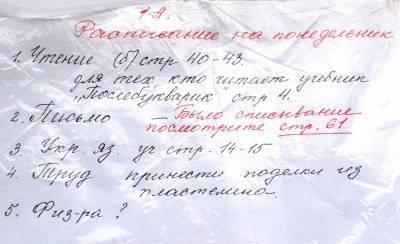 1-А.
Расписание на понедельник
1. Чтение (б) стр 40-43.
для тех, кто читает учебник
„Послебукварик" стр. 4.
2. Письмо — Было списывание
посмотрите стр. 61
3. Укр. яз. уч. стр. 14-15
4. Труд принести поделки из
пластелина.
5. Физ-ра ?